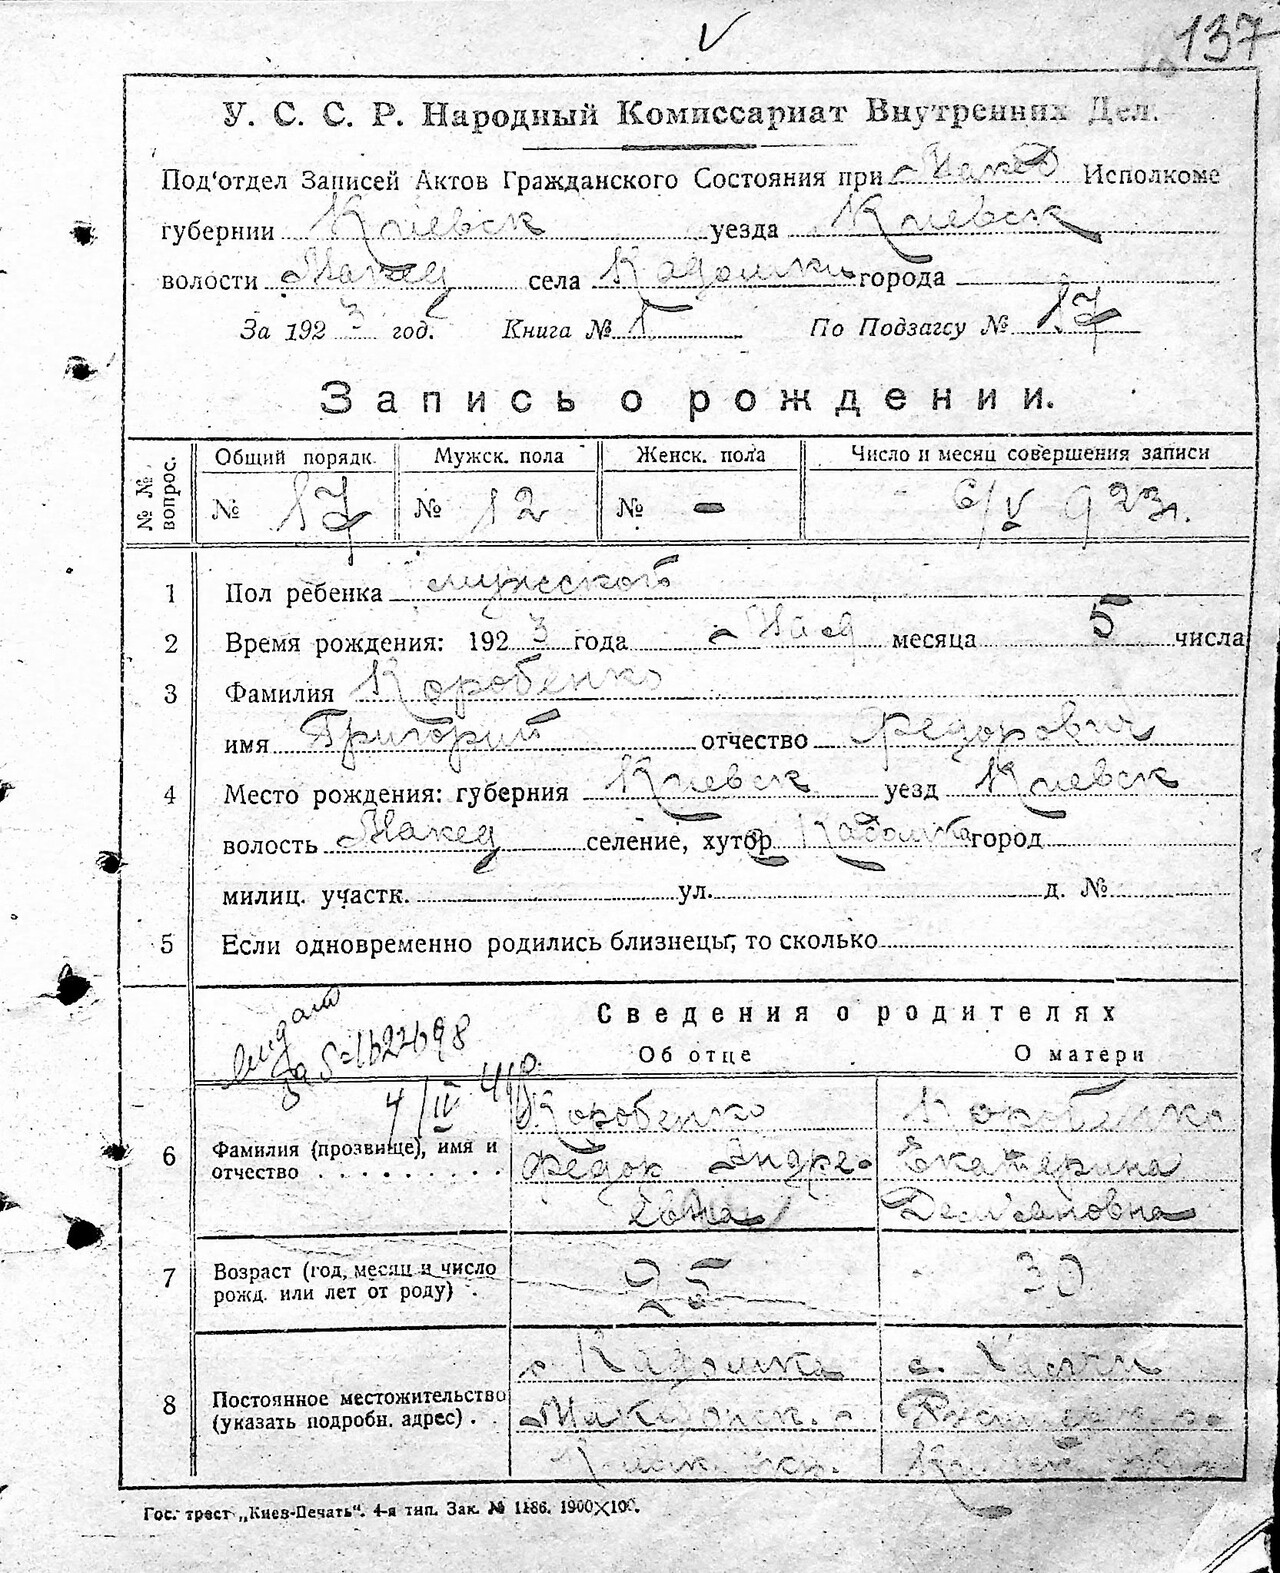 137
У. С. С. Р. Народный Комиссариат Внутренних Дел.
Под'отдел Записей Актов Гражданского Состояния при Исполкоме
губернии Киевск уезда Киевск
волости Макед села Кадомки города
За 1923 год. Книга № 1 По Подзагсу № 17
Запись о рождении.
№ № вопрос. Общий порядк. Мужск. пола Женск. пола Число и месяц совершения записи
№ 17 № 12 № - 6/V 923 г.
1 Пол ребенка мужской
2 Время рождения: 1923 года Мая месяца 5 числа
3 Фамилия Коробенко
имя Григорий отчество Федорович
4 Место рождения: губерния Киевск уезд Киевск
волость Макед селение, хутор Кадомка город
милиц. участк. ул. д. №
5 Если одновременно родились близнецы, то сколько
Сведения о родителях
Об отце О матери
4/IV
6 Фамилия (прозвище), имя и отчество
Коробенко Коробенко
Федор Андре- Екатерина
Демьяновна
7 Возраст (год, месяц и число рожд. или лет от роду) 25 30
8 Постоянное местожительство (указать подробн. адрес)
с. Кадомка с.
Гос. трест „Киев-Печать“. 4-я тип. Зак. № 1186. 1900×100.